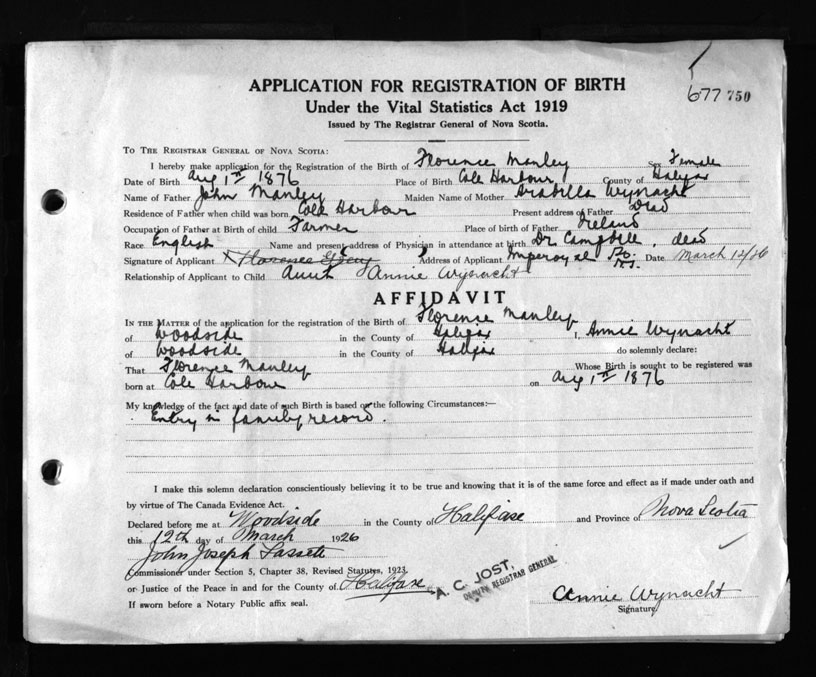 677 750
APPLICATION FOR REGISTRATION OF BIRTH
Under the Vital Statistics Act 1919
Issued by The Registrar General of Nova Scotia.
TO THE REGISTRAR GENERAL OF NOVA SCOTIA:
I hereby make application for the Registration of the Birth of Florence Manley Female
Date of Birth Aug 1st 1876 Place of Birth Cole Harbour County of Halifax
Name of Father John Manley Maiden Name of Mother Arabella Wynacht
Residence of Father when child was born Cole Harbour Present address of Father Dead
Occupation of Father at Birth of child Farmer Place of birth of Father Ireland
Race English Name and present address of Physician in attendance at birth Dr Campbell, dead
Signature of Applicant X Florence Address of Applicant Imperoyal Date March 12/26
Relationship of Applicant to Child Aunt Annie Wynacht
AFFIDAVIT
IN THE MATTER of the application for the registration of the Birth of Florence Manley
of Woodside in the County of Halifax I, Annie Wynacht
of Woodside in the County of Halifax do solemnly declare:
That Florence Manley Whose Birth is sought to be registered was
born at Cole Harbour on Aug 1st 1876
My knowledge of the fact and date of such Birth is based on the following Circumstances:—
Entry in family record.
I make this solemn declaration conscientiously believing it to be true and knowing that it is of the same force and effect as if made under oath and
by virtue of The Canada Evidence Act.
Declared before me at Woodside in the County of Halifax and Province of Nova Scotia
this 12th day of March 1926
John Joseph
Commissioner under Section 5, Chapter 38, Revised Statutes, 1923.
or Justice of the Peace in and for the County of Halifax
A. C. JOST,
DEPUTY REGISTRAR GENERAL
If sworn before a Notary Public affix seal.
Annie Wynacht
Signature